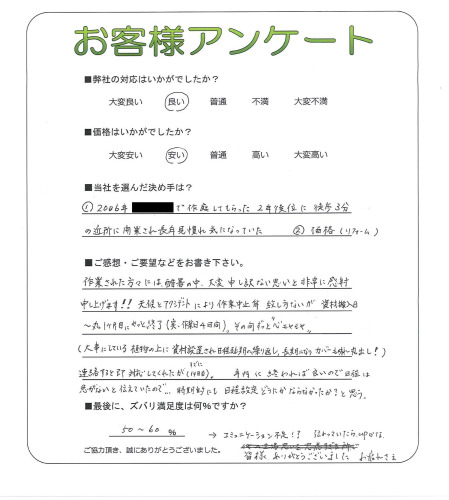 お客様アンケート
■弊社の対応はいかがでしたか?
大変良い 良い 普通 不満 大変不満
■価格はいかがでしたか?
大変安い 安い 普通 高い 大変高い
■当社を選んだ決め手は?
① 2006年 で作庭してもらった 2年後位に 徒歩3分
の近所に開業され長年見慣れ気になっていた ② 価格(リフォーム)
■ご感想・ご要望などをお書き下さい。
作業された方々には酷暑の中、大変申し訳ない思いと非常に感謝
申し上げます!! 天候とアクシデントにより作業中止等 致し方ないが 資材搬入日
〜丸1ヶ月目にやっと終了(実、作業日4日間)。その間ずっと
(大事にしている植物の上に資材放置され日程延期の繰り返し、長期になりカバーも 丸出し!)
連絡すると即 対応してくれたが(14日目)。 年内に終われば良いので日程は
急がないと伝えていたので… 時期的にも日程設定どうにかならなかったか?と思う。
■最後に、ズバリ満足度は何%ですか?
50〜60 % → コミュニケーション不足!? 伝わっていたらupかな
ご協力頂き、誠にありがとうございました。
皆様 ありがとうございました